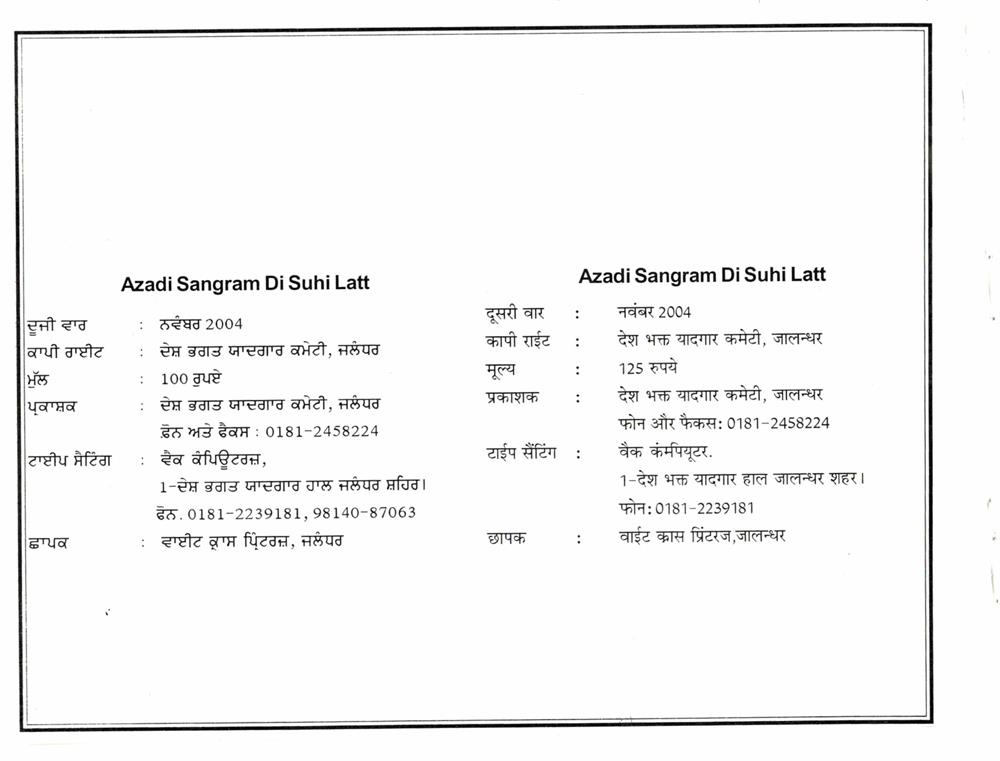 Azadi Sangram Di Suhi Latt
ਦੂਜੀ ਵਾਰ : ਨਵੰਬਰ 2004
ਕਾਪੀ ਰਾਈਟ : ਦੇਸ਼ ਭਗਤ ਯਾਦਗਾਰ ਕਮੇਟੀ, ਜਲੰਧਰ
ਮੁੱਲ : 100 ਰੁਪਏ
ਪ੍ਰਕਾਸ਼ਕ : ਦੇਸ਼ ਭਗਤ ਯਾਦਗਾਰ ਕਮੇਟੀ, ਜਲੰਧਰ
ਫ਼ੋਨ ਅਤੇ ਫੈਕਸ : 0181-2458224
ਟਾਈਪ ਸੈਟਿੰਗ : ਵੈਕ ਕੰਪਿਊਟਰਜ਼,
1-ਦੇਸ਼ ਭਗਤ ਯਾਦਗਾਰ ਹਾਲ ਜਲੰਧਰ ਸ਼ਹਿਰ।
ਫੋਨ. 0181-2239181, 98140-87063
ਛਾਪਕ : ਵਾਈਟ ਕ੍ਰਾਸ ਪ੍ਰਿੰਟਰਜ਼, ਜਲੰਧਰ
Azadi Sangram Di Suhi Latt
दूसरी वार : नवंबर 2004
कापी राईट : देश भक्त यादगार कमेटी, जालन्धर
मूल्य : 125 रुपये
प्रकाशक : देश भक्त यादगार कमेटी, जालन्धर
फोन और फैकस: 0181-2458224
टाईप सैंटिंग : वैक कंमपियूटर.
1-देश भक्त यादगार हाल जालन्धर शहर।
फोन: 0181-2239181
छापक : वाईट क्रास प्रिंटरज,जालन्धर